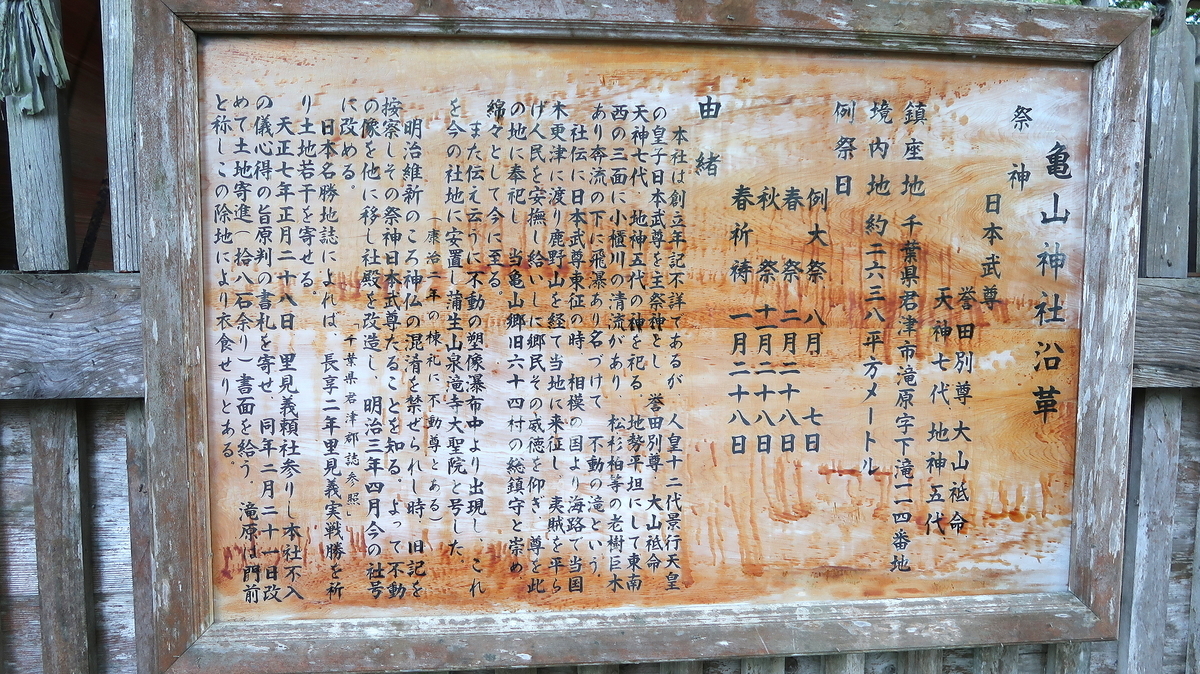 亀山神社沿革
祭神
日本武尊
誉田別尊 大山祇命
天神七代 地神五代
鎮座地 千葉県君津市滝原字下滝一一四番地
境内地 約二六三八平方メートル
例祭日
例大祭 八月 七日
春祭 二月二十八日
秋祭 十一月二十八日
春祈祷 一月二十八日
由緒
本社は創立年記不詳であるが 人皇十二代景行天皇
の皇子日本武尊を主祭神とし 誉田別尊 大山祇命
天神七代 地神五代の神を祀る。地勢平坦にして東南
西の三面に小櫃川の清流があり、松杉柏等の老樹巨木
あり奔流の下に飛瀑あり名づけて 不動の滝という。
社伝に日本武尊東征の時、相模の国より海路で当国
木更津に渡り鹿野山を経て当地に来征し、夷賊を平ら
げ人民を安撫し給いしに郷民その威徳を仰ぎ、尊を此
の地に奉祀し 当亀山郷旧六十四村の総鎮守と崇め
綿々として今に至る。
また伝え云うに不動の塑像瀑布中より出現し、これ
(康治二年の棟札に不動尊とある)
を今の社地に安置し蒲生山泉滝寺大聖院と号した。
明治維新のころ神仏の混淆を禁ぜられし時、旧記を
按察しその祭神日本武尊たることを知る。よって不動
の像を他に移し社殿を改造し、明治三年四月今の社号
に改める。
「千葉県君津郡誌参照
日本名勝地誌によれば 長享二年里見義実戦勝を祈
り土地若干を寄せる。
天正七年正月二十八日 里見義頼社参りし本社不入
の儀心得の旨原判の書札を寄せ、同年二月二十一日改
めて土地寄進(拾八石余り)書面を給う、滝原は門前
と称しこの除地により衣食せりとある。